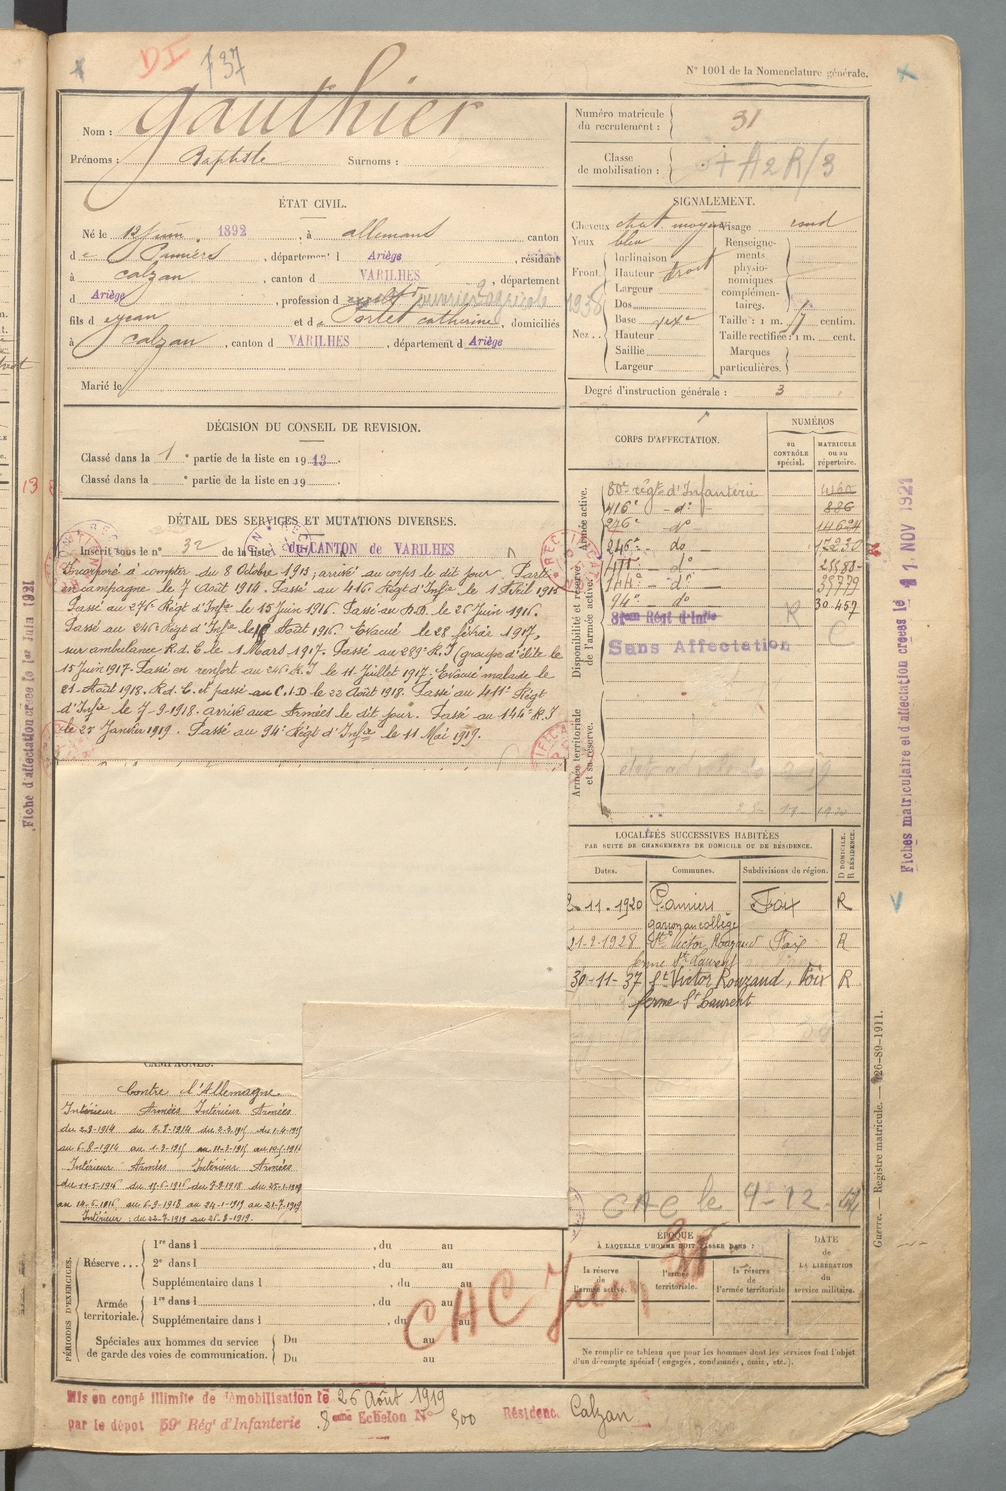 DI 137
N° 1001 de la Nomenclature générale.
Nom : Gauthier
Prénoms : Baptiste Surnoms :
Numéro matricule du recrutement : 31
Classe de mobilisation : A2R/3
ÉTAT CIVIL.
Né le 12 Juin 1892, à allemans canton
de Pamiers, département d Ariège, résidant
à Calzan, canton d VARILHES, département
d Ariège, profession d ouvrier agricole 1938
fils d Jean et de Portet Catherine, domiciliés
à Calzan, canton d VARILHES, département d Ariège
Marié le
SIGNALEMENT.
Cheveux chat. moyen Visage rond
Yeux bleu
Front. Inclinaison
Hauteur droit
Largeur
Nez.. Dos
Base
Hauteur
Saillie
Largeur
Renseignements physionomiques complémentaires.
Taille : 1 m. centim.
Taille rectifiée : 1 m. cent.
Marques particulières.
Degré d'instruction générale : 3
DÉCISION DU CONSEIL DE REVISION.
Classé dans la 1e partie de la liste en 1913.
Classé dans la e partie de la liste en 19
DÉTAIL DES SERVICES ET MUTATIONS DIVERSES.
Inscrit sous le n° 32 de la liste du CANTON de VARILHES
Incorporé à compter du 8 Octobre 1913; arrivé au corps le dit jour. Parti
en campagne le 7 Août 1914. Passé au 416e Régt d'Infie le 1 Avril 1915
Passé au 276e Régt d'Infie le 15 Juin 1916. Passé au D.D. le 26 Juin 1916.
Passé au 246e Régt d'Infie le Août 1916. Evacué le 28 février 1917,
sur ambulance R.d.C. le 1 Mars 1917. Passé au 289e R.I. (groupe d'élite le
15 Juin 1917. Passé en renfort au 246 R.I le 11 Juillet 1917. Evacué malade le
21 Août 1918. R.d.C. et passé au C.I.D le 22 Août 1918. Passé au 411e Régt
d'Infie le 7-9-1918. arrivé aux Armées le dit jour. Passé au 144e R.I
le 25 Janvier 1919. Passé au 94e Régt d'Infie le 11 Mai 1919.
CORPS D'AFFECTATION.
NUMÉROS
au CONTRÔLE spécial.
MATRICULE ou au répertoire.
Armée active.
80e régt d'Infanterie
416e - do - 886
276e - do 14624
246e do 17230
411e - do
144e - do 38779
94e - do 30.457
Disponibilité et réserve de l'armée active.
81ème Régt d'Infie R C
Sans Affectation
Armée territoriale et sa réserve.
LOCALITÉS SUCCESSIVES HABITÉES
PAR SUITE DE CHANGEMENTS DE DOMICILE OU DE RÉSIDENCE.
Dates. Communes. Subdivisions de région. D DOMICILE. R RÉSIDENCE.
2-11-1920 Pamiers Foix R
garçon au collège
21-2-1928 St Victor Rouzaud Foix R
ferme St Laurent
30-11-37 St Victor Rouzaud, Foix R
ferme St Laurent
CAC le
CAMPAGNES.
Contre l'Allemagne
Intérieur Armées Intérieur Armées
du 2-8-1914 du 7-8-1914 du 2-3-1915 du 1-4-1915
au 6-8-1914 au 1-3-1915
Intérieur Armées Intérieur Armées
du 25-1-1919
au 14-6-1916 au 6-9-1918 au 24-1-1919 au 21-7-1919
Intérieur : du 22-7-1919 au 25-8-1919.
PÉRIODES D'EXERCICES.
Réserve ... 1re dans l , du au
2e dans l , du au
Supplémentaire dans l , du au
Armée territoriale. 1re dans l , du au
Supplémentaire dans l , du au
Spéciales aux hommes du service de garde des voies de communication. Du au
Du au
CAC Juin
ÉPOQUE
À LAQUELLE L'HOMME DOIT PASSER DANS :
la réserve de l'armée active.
l'armée territoriale.
la réserve de l'armée territoriale
DATE de LA LIBÉRATION du service militaire.
Ne remplir ce tableau que pour les hommes dont les services font l'objet
d'un décompte spécial (engagés, condamnés, omis, etc.).
Mis en congé illimité de démobilisation le 26 Août 1919
par le dépôt 59e Rég d'Infanterie 8ème Echelon N° 500 Résidence Calzan
Fiche d'affectation créée le 1er Juin 1921
Fiches matriculaire et d'affectation créées le 11 NOV 1921
Guerre. — Registre matricule. — 126-89-1911.